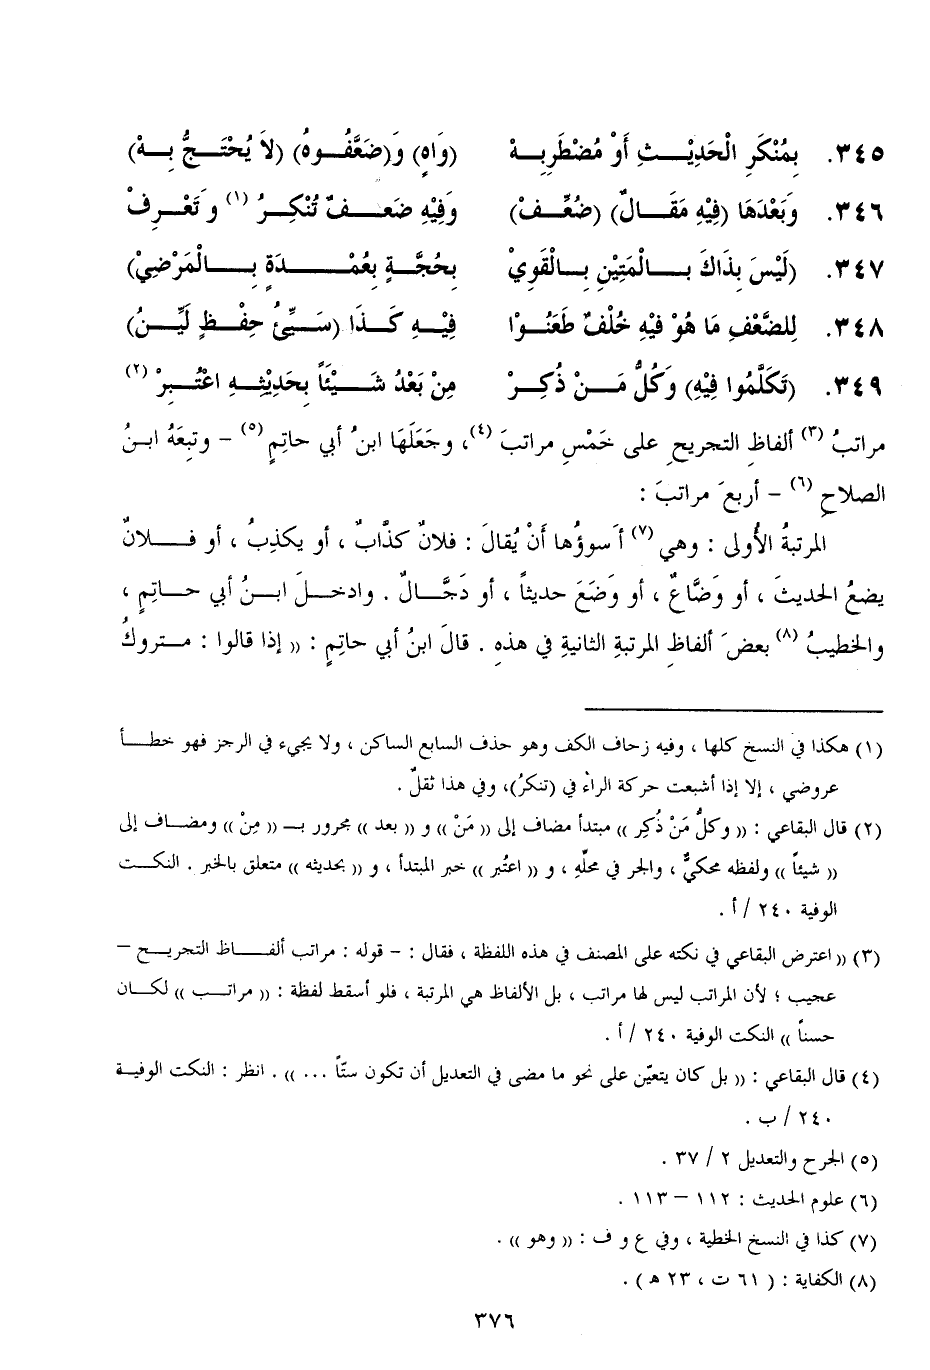 ٣٤٥. بِمُنْكَرِ الْحَدِيْثِ أَوْ مُضْطَرِبِهْ (وَاهٍ) وَ(ضَعَّفُوهُ) (لاَ يُحْتَجُّ بِهْ)
٣٤٦. وَبَعْدَهَا (فِيْهِ مَقَالٌ) (ضُعِّفْ) وَفِيْهِ ضَعفٌ تُنْكِرُ (١) وَتَعْرِفْ
٣٤٧. (لَيْسَ بِذَاكَ بالْمَتِيْنِ بِالْقَوِيْ بِحُجَّةٍ بِعُمْدَةٍ بِالْمَرْضِيْ)
٣٤٨. لِلضَّعْفِ مَا هُوْ فِيْهِ خُلْفٌ طَعَنُوْا فِيْهِ كَذَا (سَيِّئُ حِفْظٍ لَيِّنُ)
٣٤٩. (تَكَلَّمُوا فِيْهِ) وَكُلُّ مَنْ ذُكِرْ مِنْ بَعْدُ شَيْئَاً بِحَدِيْثِهِ اعْتُبِرْ (٢)
مراتبُ (٣) ألفاظِ التجريحِ على خَمْسِ مراتبَ (٤)، وجَعَلَهَا ابنُ أبي حاتِمٍ (٥) – وتبِعَهُ ابنُ
الصلاحِ (٦) – أربعَ مراتبَ :
المرتبةُ الأُولى : وهي (٧) أسوؤُها أنْ يُقالَ : فلانٌ كذَّابٌ ، أو يكذِبُ ، أو فلانٌ
يضعُ الحديثَ ، أو وَضَّاعٌ ، أو وَضَعَ حديثاً ، أو دَجَّالٌ . وادخلَ ابنُ أبي حاتِمٍ ،
والخطيبُ (٨) بعضَ ألفاظِ المرتبةِ الثانيةِ في هذهِ . قالَ ابنُ أبي حاتِمٍ : (( إذا قالوا : متروكُ
(١) هكذا في النسخ كلها ، وفيه زحاف الكف وهو حذف السابع الساكن ، ولا يجيء في الرجز فهو خطأ
عروضي ، إلا إذا أشبعت حركة الراء في (تنكرُ)، وفي هذا ثقلٌ .
(٢) قال البقاعي : (( وكلُّ مَنْ ذُكِر )) مبتدأ مضاف إلى (( مَنْ )) و (( بعد )) مجرور بـ (( مِنْ )) ومضاف إلى
(( شيئاً )) ولفظه محكيٌّ ، والجر في محلّهِ ، و (( اعتُبر )) خبر المبتدأ ، و (( بحديثه )) متعلق بالخبر . النكت
الوفية ٢٤٠ / أ .
(٣) (( اعترض البقاعي في نكته على المصنف في هذه اللفظة ، فقال : – قوله : مراتب ألفاظ التجريح –
عجيب ؛ لأن المراتب ليس لها مراتب ، بل الألفاظ هي المرتبة ، فلو أسقط لفظة : (( مراتب )) لكان
حسناً )) النكت الوفية ٢٤٠ / أ .
(٤) قال البقاعي : (( بل كان يتعيّن على نحو ما مضى في التعديل أن تكون ستّاً ... )) . انظر : النكت الوفية
٢٤٠ / ب .
(٥) الجرح والتعديل ٢ / ٣٧ .
(٦) علوم الحديث : ١١٢ – ١١٣ .
(٧) كذا في النسخ الخطية ، وفي ع و ف : (( وهو )) .
(٨) الكفاية : ( ٦١ ت ، ٢٣ ه ) .
٣٧٦